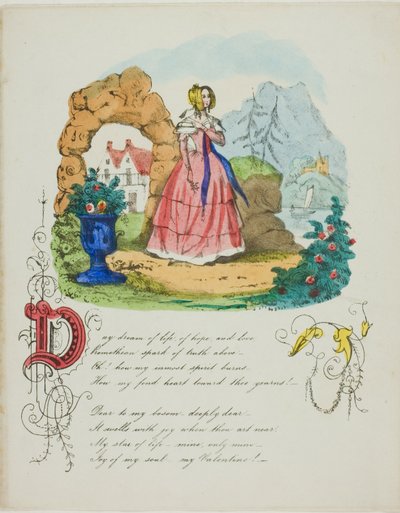 Day dream of life, of hope, and love
Promethean spark of truth above—
Oh! how my inmost spirit burns
How my fond heart toward thee yearns!—
Dear to my bosom—deeply dear—
It swells with joy when thou art near
My star of life—mine, only mine—
Joy of my soul—my Valentine!—